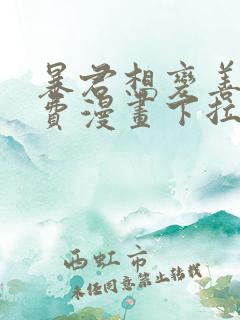 暴君想變善
費漫畫下拉
西虹市
未经同意禁止转载